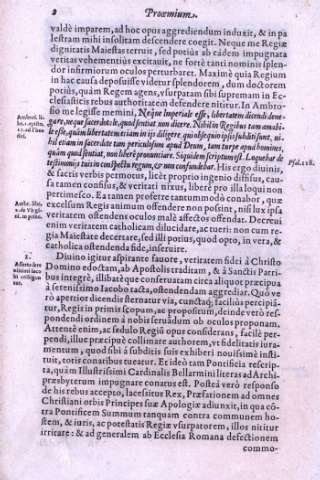 2 Proœmium.
valdè imparem, ad hoc opus aggrediendum induxit, & in pa
lestram mihi insolitam descendere coegit. Neque me Regiæ
dignitatis Maiestas terruit, sed potiùs ab eâdem impugnata
veritas vehementiùs excitauit, ne fortè tanti nominis splen-
dor infirmiorum oculos perturbaret. Maximè quia Regium
in hac causa deposuisse videtur splendorem, dum doctorem
potiùs, quàm Regem agens, vsurpatam sibi supremam in Ec-
clesiasticis rebus authoritatem defendere nititur. In Ambro-
sio me legisse memini, Neque Imperiale esse, libertatem dicendi dene-
gare, neque sacerdotale, quod sentiat non dicere. Nihil in Regibus tam amabi-
le esse, quàm libertatem etiam in ijs diligere, qui obsequio ipsis subditi sunt, ni-
hil etiam in sacerdote tam periculosum apud Deum, tam turpe apud homines,
quàm quod sentiat, non liberè pronunciare. Siquidem scriptum est. Loquebar de
testimonijs tuis in conspectu regum, & non confundebar. His ergo diuinis,
& sactis verbis permotus, licèt proprio ingenio diffisus, cau-
sa tamen confisus, & veritati nixus, liberè pro illa loqui non
pertimesco. Ea tamen præferre tantummodò conabor, quæ
excelsum Regis animum offendere non possint, nisi lux ipsa
veritatem ostendens oculos malè affectos offendat. Decreui
enim veritatem catholicam dilucidare, ac tueri: non cum re-
gia Maiestate decertare, sed illi potiùs, quod opto, in vera, &
catholica ostendenda fide, inseruire.
Diuino igitur aspirante fauore, veritatem fidei à Christo
Domino edoctam, ab Apostolis traditam, & à Sanctis Patri-
bus integrè, illibatè que conseruatam circa aliquot præcipua
à serenissimo Iacobo tacta, ostendendam aggrediar. Quò ve
rò aperior dicendi sternatur via, cunctaq; faciliùs percipiã-
tur, Regis in primis scopum, ac propositum, deinde verò res-
pondendi ordinem à nobis seruãdum ob oculos proponam.
Attentè enim, ac sedulo Regiũ opus considerans, facilè per-
pendi, illud præcipuè collimare authorem, vt fidelitatis iura-
mentum, quod sibi à subditis suis exhiberi nouissimè insti-
tuit, totis conatibus tueatur. Et ideò tam Pontificia rescrip-
ta, quàm Illustrissimi Cardinalis Bellarmini literas ad Archi-
præsbyterum impugnare conatus est. Posteà verò responso
de his rebus accepto, lacessitus Rex, Præfationem ad omnes
Christiani orbis Principes suæ Apologiæ adiunxit, in qua cõ-
tra Pontificem Summum tanquam contra communem ho-
stem, & iuris, ac potestatis Regiæ vsurpatorem, illos nititur
irritare: & ad generalem ab Ecclesia Romana defectionem
commo-
Psal. 118.
2.